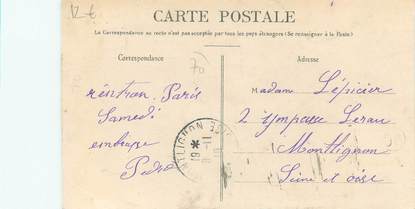 12 €
CARTE POSTALE
La Correspondance au recto n'est pas acceptée par tous les pays étrangers (Se renseigner à la Poste)
Correspondance
Adresse
70
rentron Paris
Samedi
embrasse
Pedro
Madame Lépicier
2 impasse Leran
Montlignon
Seine et oise
MONTLIGNON